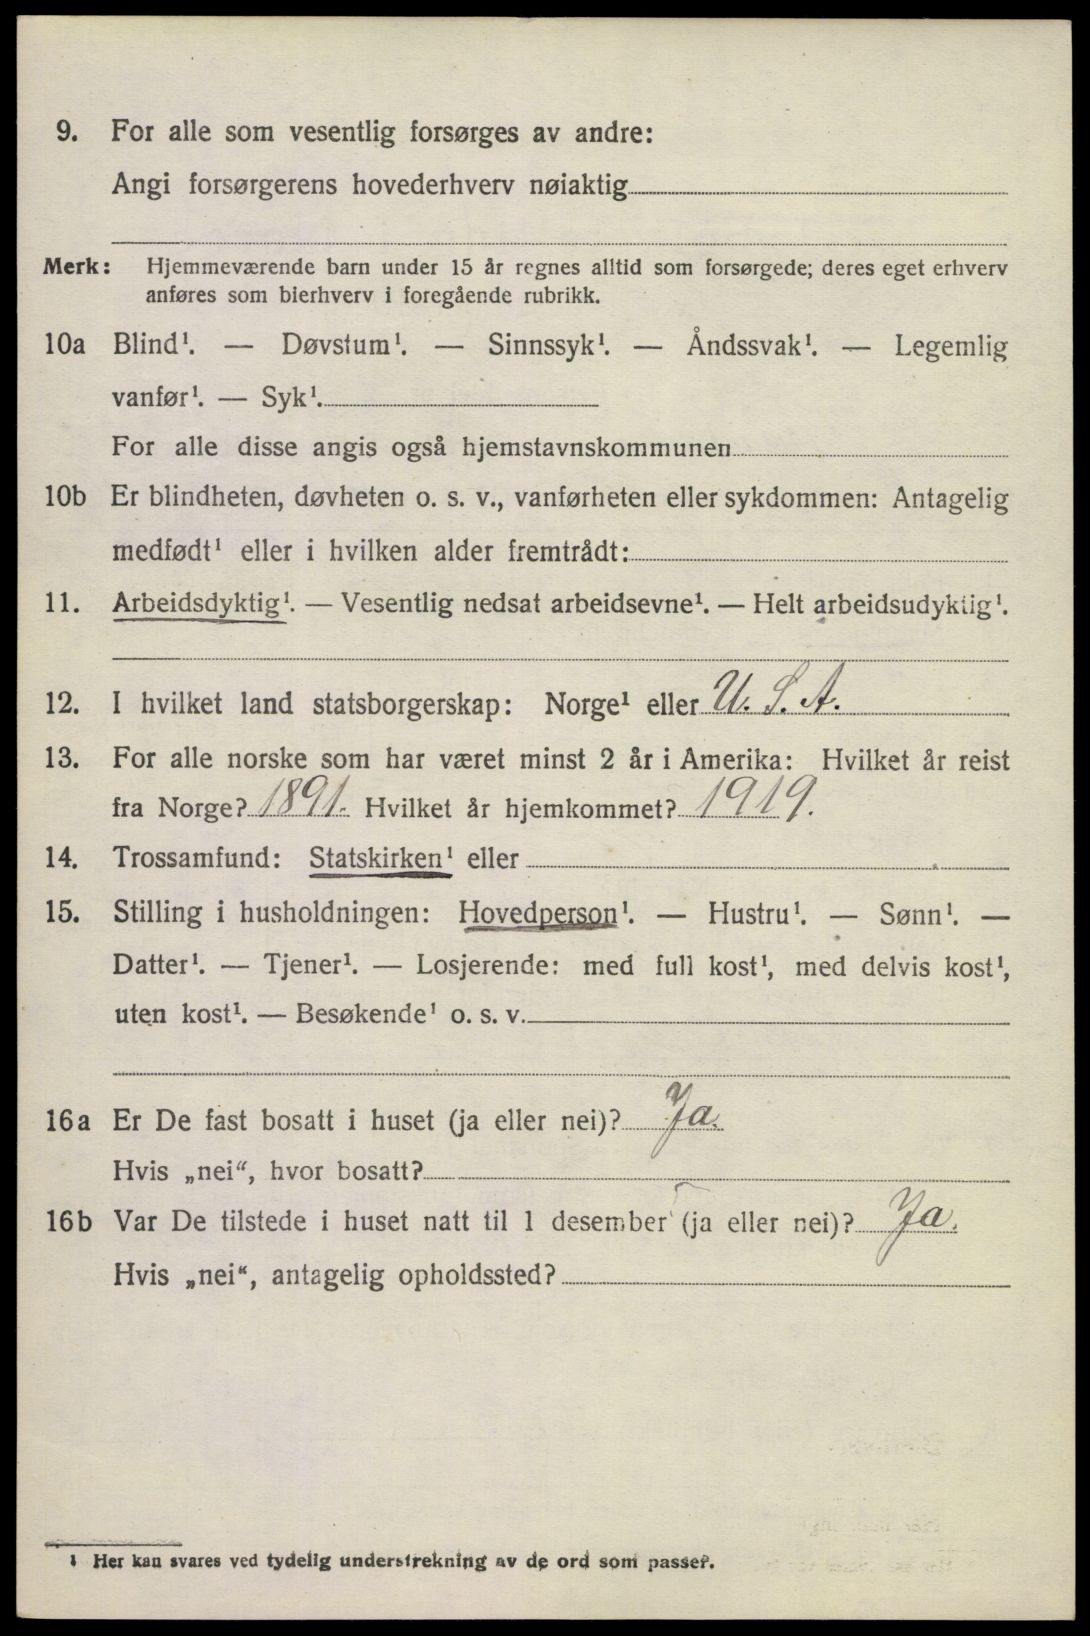 9. For alle som vesentlig forsørges av andre:
Angi forsørgerens hovederhverv nøiaktig
Merk: Hjemmeværende barn under 15 år regnes alltid som forsørgede; deres eget erhverv
anføres som bierhverv i foregående rubrikk.
10a Blind¹. — Døvstum¹. — Sinnssyk¹. — Åndssvak¹. — Legemlig
vanfør¹. — Syk¹.
For alle disse angis også hjemstavnskommunen
10b Er blindheten, døvheten o. s. v., vanførheten eller sykdommen: Antagelig
medfødt¹ eller i hvilken alder fremtrådt:
11. Arbeidsdyktig¹. — Vesentlig nedsat arbeidsevne¹. — Helt arbeidsudyktig¹.
12. I hvilket land statsborgerskap: Norge¹ eller U. S. A.
13. For alle norske som har været minst 2 år i Amerika: Hvilket år reist
fra Norge? 1891. Hvilket år hjemkommet? 1919.
14. Trossamfund: Statskirken¹ eller
15. Stilling i husholdningen: Hovedperson¹. — Hustru¹. — Sønn¹. —
Datter¹. — Tjener¹. — Losjerende: med full kost¹, med delvis kost¹,
uten kost¹. — Besøkende¹ o. s. v.
16a Er De fast bosatt i huset (ja eller nei)? Ja.
Hvis „nei“, hvor bosatt?
16b Var De tilstede i huset natt til 1 desember (ja eller nei)? Ja.
Hvis „nei“, antagelig opholdssted?
¹ Her kan svares ved tydelig understrekning av de ord som passer.